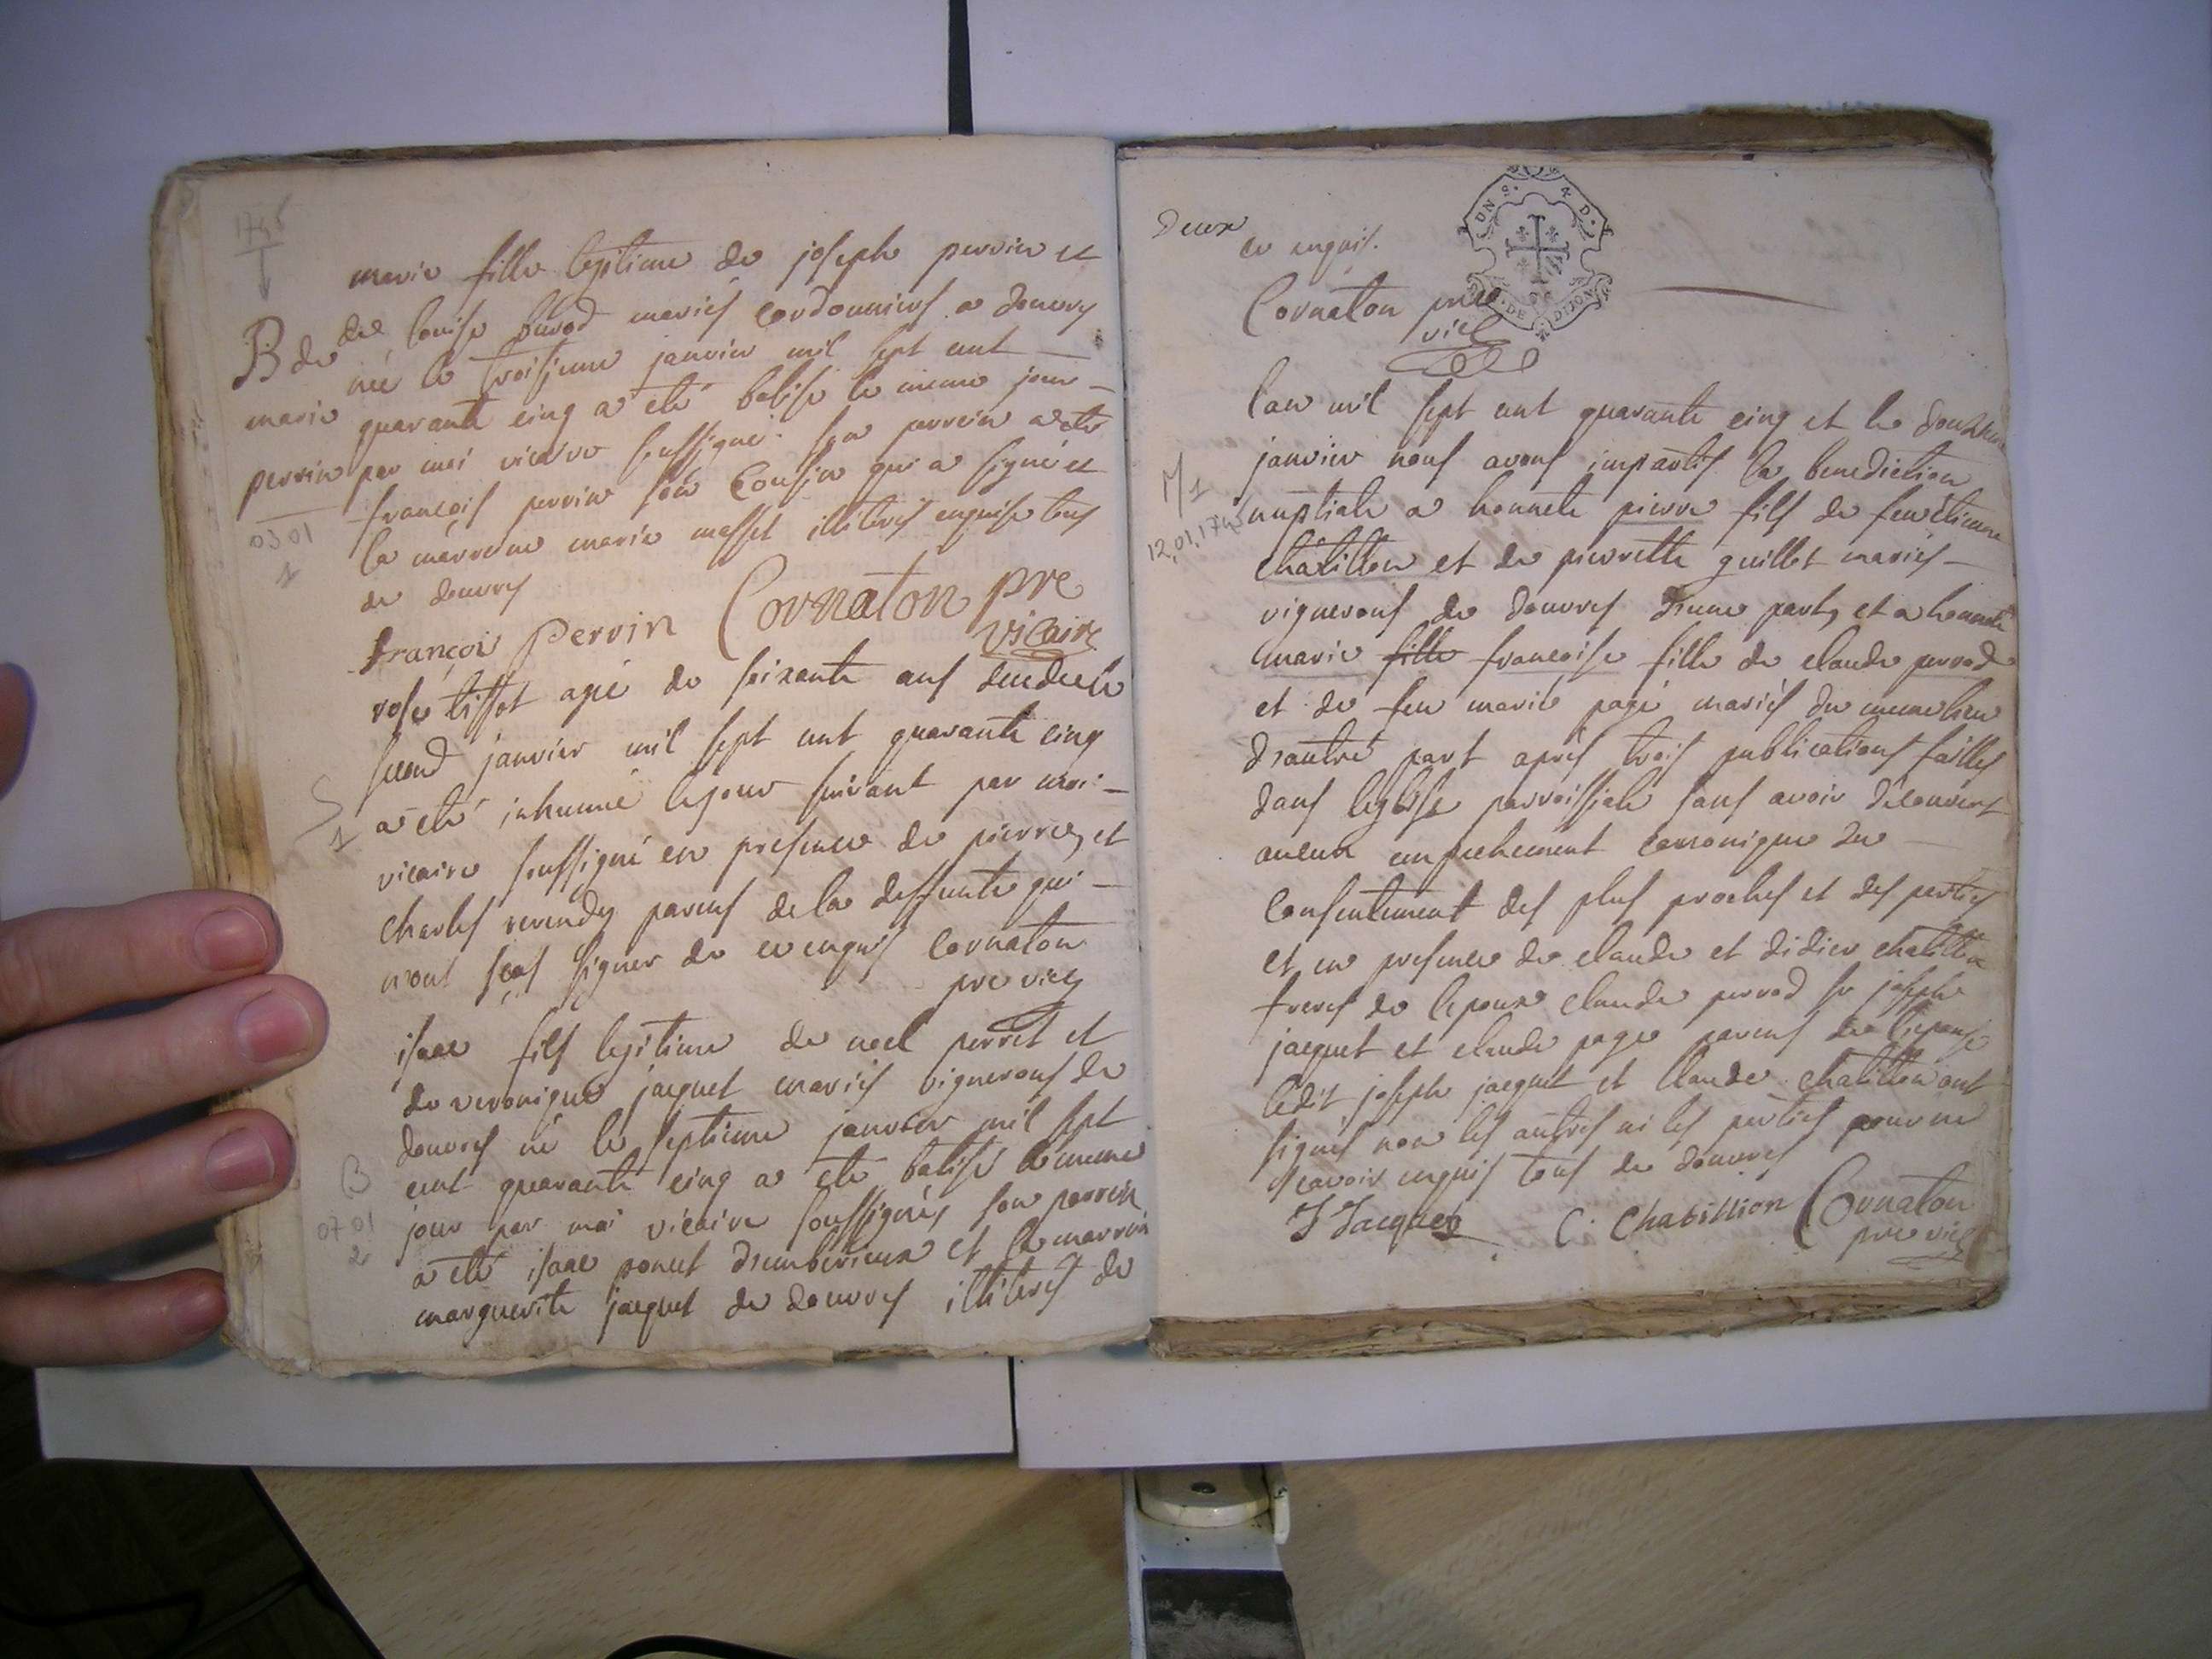 1745
marie fille legitime de joseph perrin et
de louise burod mariés cordonniers a douvres
B de
née le troisieme janvier mil sept cent
marie
quarante cinq a eté batisé le meme jour
perrin
par moi vicaire soussigné son parrein a eté
françois perrin son cousin qui a signé et
03 01
1
la marreine marie messet illiterés enquise tous
de douvres
françois perrin Cornaton pre
vicaire
rose tissot agée de soixante ans decedée le
second janvier mil sept cent quarante cinq
S
1
a eté inhumée le jour suivant par moi
vicaire soussigné en presence de pierre, et
charles parens de la deffunte qui
n'ont sçus signer de ce enquis Cornaton
pre vic
isaac fils legitime de noel perret et
de veronique jacquet mariés vignerons de
douvres né le septieme janvier mil sept
cent quarante cinq a eté batisé le meme
B
jour par moi vicaire soussigné, son parrein
07 01
2
a eté isaac poncet d'emberieux et la marreine
marguerite jacquet de douvres illiterés de
Deux
ce enquis.
Cornaton pre
vic
UN S. 4 D.
DE DIJON
l'an mil sept cent quarante cinq et le douzieme
janvier nous avons impartis la benediction
M 1
nuptiale a honnete pierre fils de feu etienne
12.01.1745
chatillon et de pierrette guillot mariés
vignerons de douvres d'une part, et a honnete
marie fille francoise fille de claude perrod
et de feu marie page mariés du meme lieu
d'autre part après trois publications faittes
dans leglise parroissiale sans avoir decouvert
aucun empechement canonique du
consentement des plus proches et des parties
et en presence de claude et didier chatillon
freres de lepoux claude perrod sr joseph
jacquet et claude page parens de lepouse
ledit joseph jacquet et claude chatillon ont
signés non les autres ni les parties pour ne
scavoir enquis tous de douvres
J Jacquet C. Chatillion Cornaton
pre vic